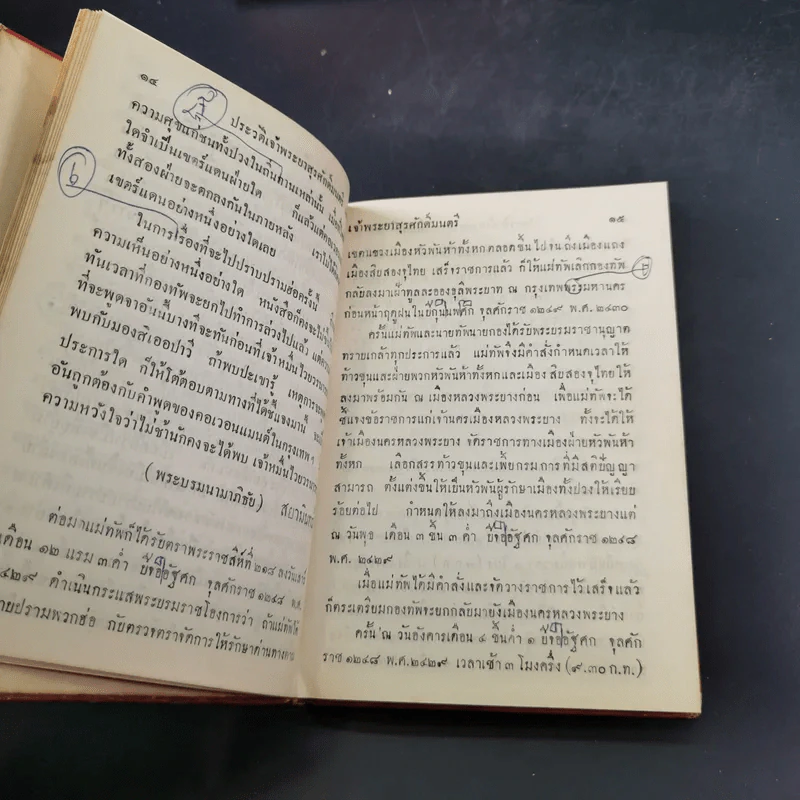 ๑๔
ประวัติเจ้าพระยาสุรศักดิ์มนตรี
ความศุขแก่ชนทั้งปวงในถิ่นฐานเหล่านั้น
ใดจำเป็นเขตร์แดนฝ่ายใด ก็แล้วแต่
ทั้งสองฝ่ายจะตกลงกันในภายหลัง เราไม่ได้
เขตร์แดนอย่างหนึ่งอย่างใดเลย
ในการเรื่องที่จะไปปราบปรามฮ่อครั้งนี้
ความเห็นอย่างหนึ่งอย่างใด หนังสือก็คงจะไม่
ทันเวลาที่กองทัพจะยกไปทำการล่วงไปแล้ว แต่
ที่จะพูดจาอันนี้บางทีจะทันก่อนที่เจ้าหมื่นไวยวรนารถ
พบกับมองสิเออปาวี ถ้าพบปะเขารู้ เหตุการ
ประการใด ก็ให้โต้ตอบตามทางที่ได้ชี้แจงมานี้
อันถูกต้องกับคำพูดของคอเวอนแมนต์ในกรุงเทพ ฯ
ความหวังใจว่าไม่ช้านักคงจะได้พบ เจ้าหมื่นไวยวรนารถ
(พระบรมนามาภิธัย) สยามินทร์
ต่อมาแม่ทัพก็ได้รับตราพระราชสีห์ที่ ๒๑๘ ลงวัน
เดือน ๑๒ แรม ๓ ค่ำ ปีจออัฐศก จุลศักราช ๑๒๔๘ พ.ศ.
๒๔๒๙ ดำเนินกระแสพระบรมราชโองการว่า ถ้าแม่ทัพได้
ปรามพวกฮ่อ กับตรวจตราจัดการให้รักษาด่านทาง
เจ้าพระยาสุรศักดิ์มนตรี
๑๕
เขตแขวงเมืองหัวพันห้าทั้งหกตลอดขึ้นไปจนถึงเมืองแถง
เมืองสิบสองจุไทย เสร็จราชการแล้ว ก็ให้แม่ทัพเลิกกองทัพ
กลับลงมาเฝ้าทูลละอองธุลีพระบาท ณ กรุงเทพมหานคร
ก่อนน่าฤดูฝนในปีกุนนพศก จุลศักราช ๑๒๔๙ พ.ศ. ๒๔๓๐
ครั้นแม่ทัพและนายทัพนายกองได้รับพระบรมราชานุญาต
ทราบเกล้าทุกประการแล้ว แม่ทัพจึงมีคำสั่งกำหนดเวลาให้
ท้าวขุนและฝ่ายพวกหัวพันห้าทั้งหกและเมืองสิบสองจุไทยให้
ลงมาพร้อมกัน ณ เมืองหลวงพระบางก่อน เพื่อแม่ทัพจะได้
ชี้แจงข้อราชการแก่เจ้านครเมืองหลวงพระบาง ทั้งจะได้ให้
เจ้าเมืองนครหลวงพระบาง จัดราชการทางเมืองฝ่ายหัวพันห้า
ทั้งหก เลือกสรรท้าวขุนและเพี้ยกรมการที่มีสติปัญญา
สามารถ ตั้งแต่งขึ้นให้เป็นหัวพันผู้รักษาเมืองทั้งปวงให้เรียบ
ร้อยต่อไป กำหนดให้ลงมาถึงเมืองนครหลวงพระบางแต่
ณ วันพุธ เดือน ๓ ขึ้น ๓ ค่ำ ปีจออัฐศก จุลศักราช ๑๒๔๘
พ.ศ. ๒๔๒๙
เมื่อแม่ทัพได้มีคำสั่งและจัดวางราชการไว้เสร็จแล้ว
ก็ตระเตรียมกองทัพจะยกกลับมายังเมืองนครหลวงพระบาง
ครั้น ณ วันอังคารเดือน ๔ ขึ้นค่ำ ๑ ปีจออัฐศก จุลศัก
ราช ๑๒๔๘ พ.ศ. ๒๔๒๙ เวลาเช้า ๓ โมงครึ่ง (๙.๓๐ ก.ท.)